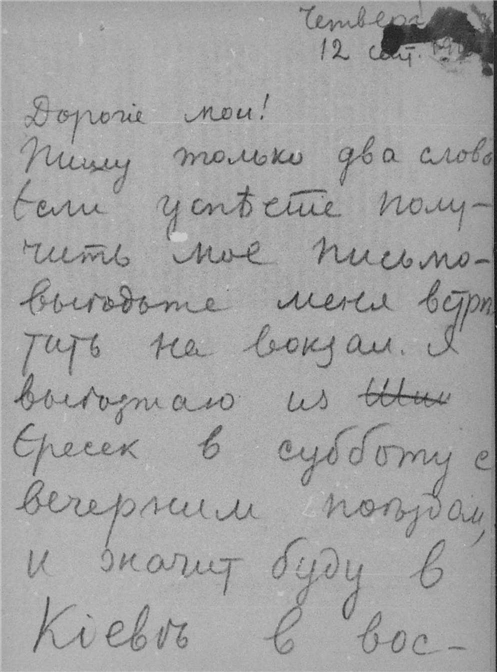 Четверг
12 сент.
Дорогіе мои!
Пишу только два слова
Если успѣете полу-
чить мое письмо-
выходьте меня встрѣ
тить на вокзал. Я
выезжаю из Ши
Єресек в субботу с
вечерним поѣздом,
и значит буду в
Кіевѣ в вос-